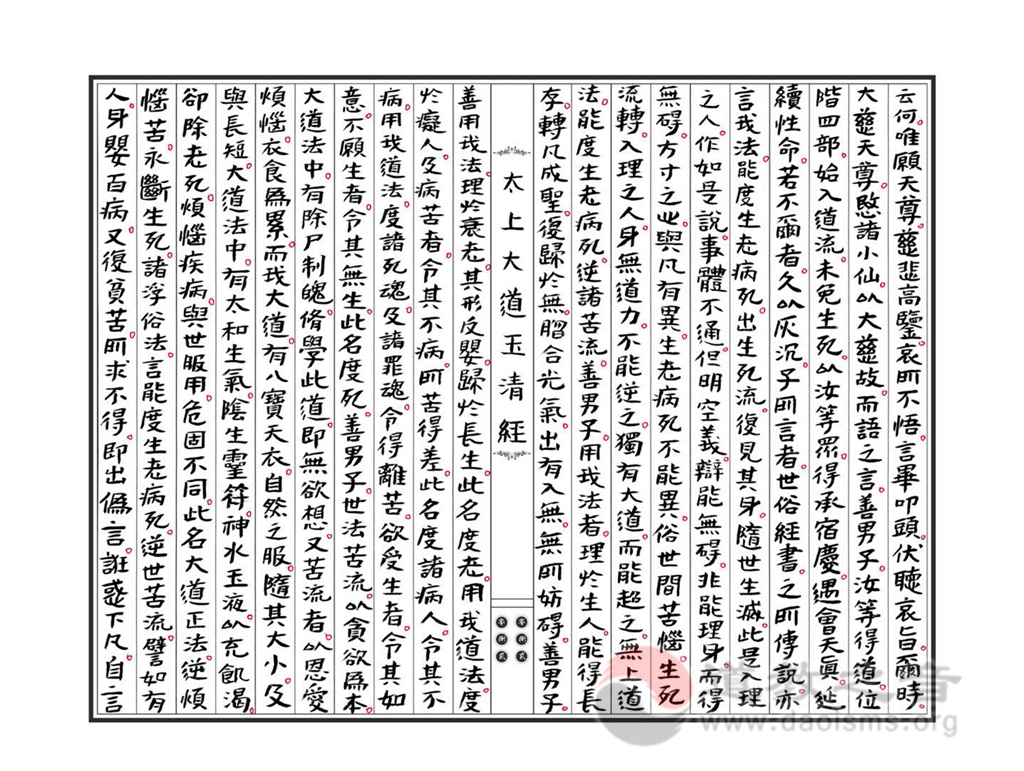 云何唯願天尊慈悲高鑒哀所不悟言畢叩頭伏聽哀旨爾時
大慈天尊愍諸小仙以大慈故而語之言善男子汝等得道位
階四部始入道流未免生死以汝等眾得承宿慶遇會天真延
續性命若不爾者久以灰沉子所言者世俗經書之所傳說亦
言我法能度生老病死出生死流復見其身隨世生滅此是入理
之人作如是說事體不通但明空義辯能無碍非能理身而得
無碍方寸之此與凡有異生老病死不能異俗世間苦惱生死
流轉入理之人身無道力不能逆之獨有大道而能超之無上道
法能度生老病死逆諸苦流善男子用我法者理於生人能得長
存轉凡成聖復歸於無𦚾合光氣出有入無無所妨碍善男子
太上大道玉清經
零捌貳
零捌貳
善用我法理於衰老其形反嬰歸於長生此名度老用我道法度
於癡人及病苦者令其不病所苦得差此名度諸病人令其不
病用我道法度諸死魂及諸罪魂令得離苦欲受生者令其如
意不願生者令其無生此名度死善男子世法苦流以貪欲為本
大道法中有除尸制魄脩學此道即無欲想又苦流者以恩愛
煩惱衣食為累而我大道有八寶天衣自然之服隨其大小及
與長短大道法中有太和生氣陰生靈符神水玉液以充飢渴
卻除老死煩惱疾病與世服用危固不同此名大道正法逆煩
惱苦永斷生死諸浮俗法言能度生老病死逆世苦流譬如有
人身嬰百病又復貧苦所求不得即出偽言誑惑下凡自言
道教之音
www.daoisms.org